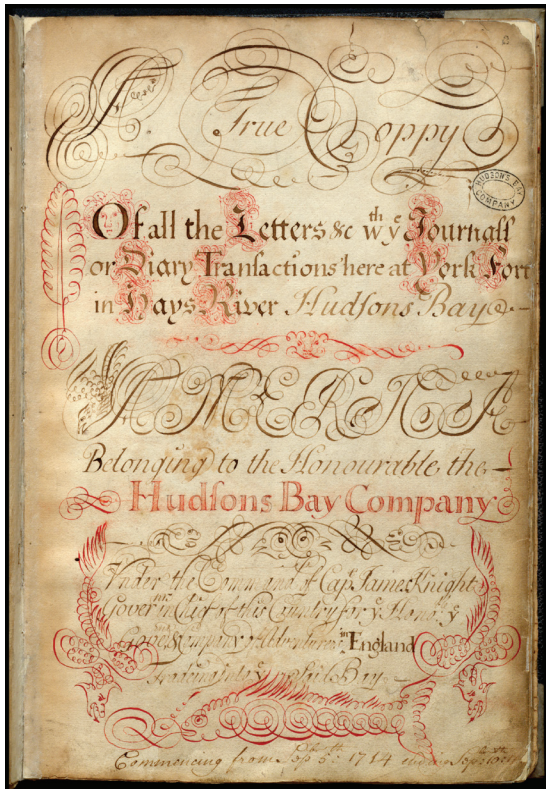 A True Coppy
HUDSON'S BAY
COMPANY
Of all the Letters &c wth ye Journall
or Diary Transactions here at York Fort
in Hays River Hudsons Bay
AMERICA
Belonging to the Honourable, the
Hudsons Bay Company
Under the Command of Capt James Knight
Goverr in Chief of this Country for ye Honor ye
Company of Adventurers in England
Tradeing Into Bay
Commencing from Sepr 5th 1714 ending Sepr